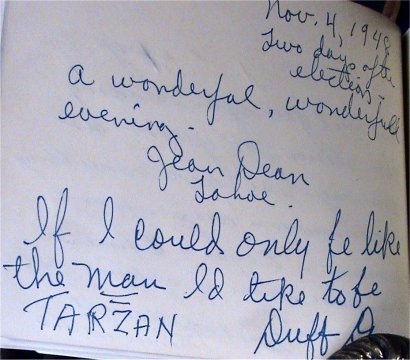 Nov. 4, 1948
Two days after
election.
a wonderful, wonderful
evening.
Jean Dean
Tahoe.
If I could only be like
the man I'd like to be
TARZAN Duff